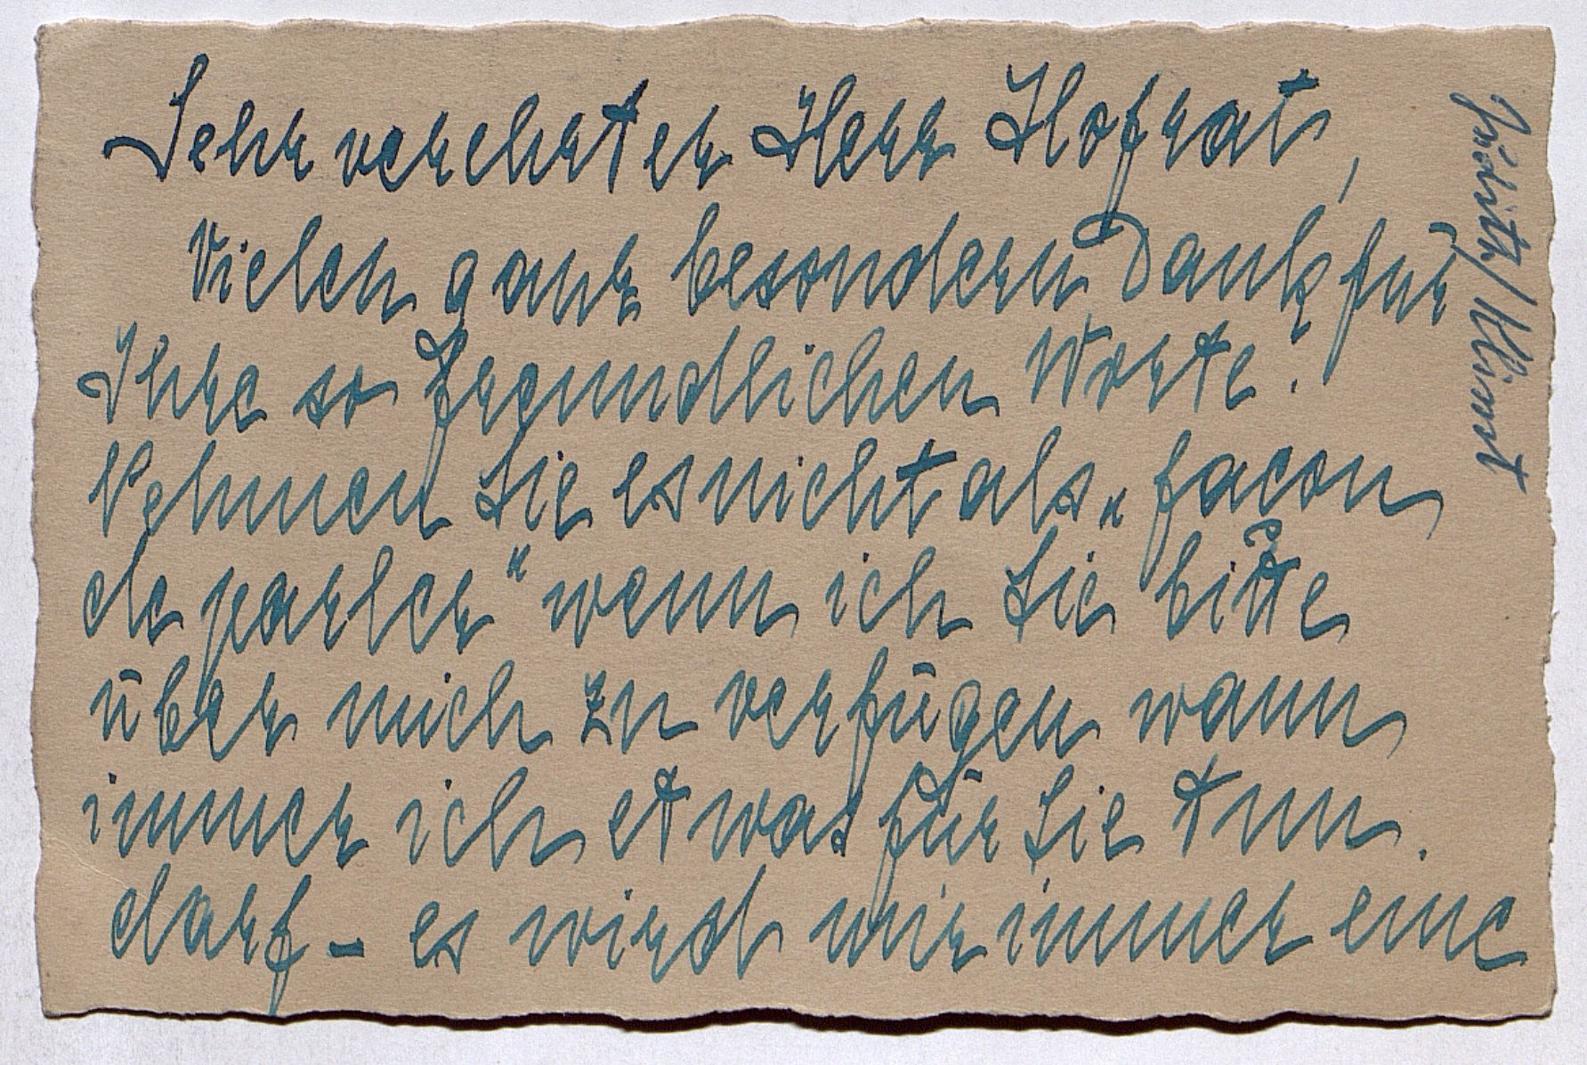 Sehr verehrter Herr Hofrat,
Vielen ganz besondern Dank für
Ihre so freundlichen Worte!
Nehmen Sie es nicht als „facon
de parler“ wenn ich Sie bitte
über mich zu verfügen wann
immer ich etwas für Sie tun.
darf – es wird mir immer eine
Klimt